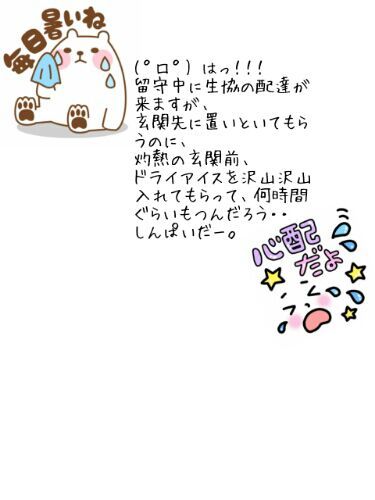 毎日暑いね
(°ロ°) はっ!!!
留守中に生協の配達が
来ますが、
玄関先に置いといてもら
うのに、
灼熱の玄関前、
ドライアイスを沢山沢山
入れてもらって、何時間
ぐらいもつんだろう・・
しんぱいだー。
心配
だよ